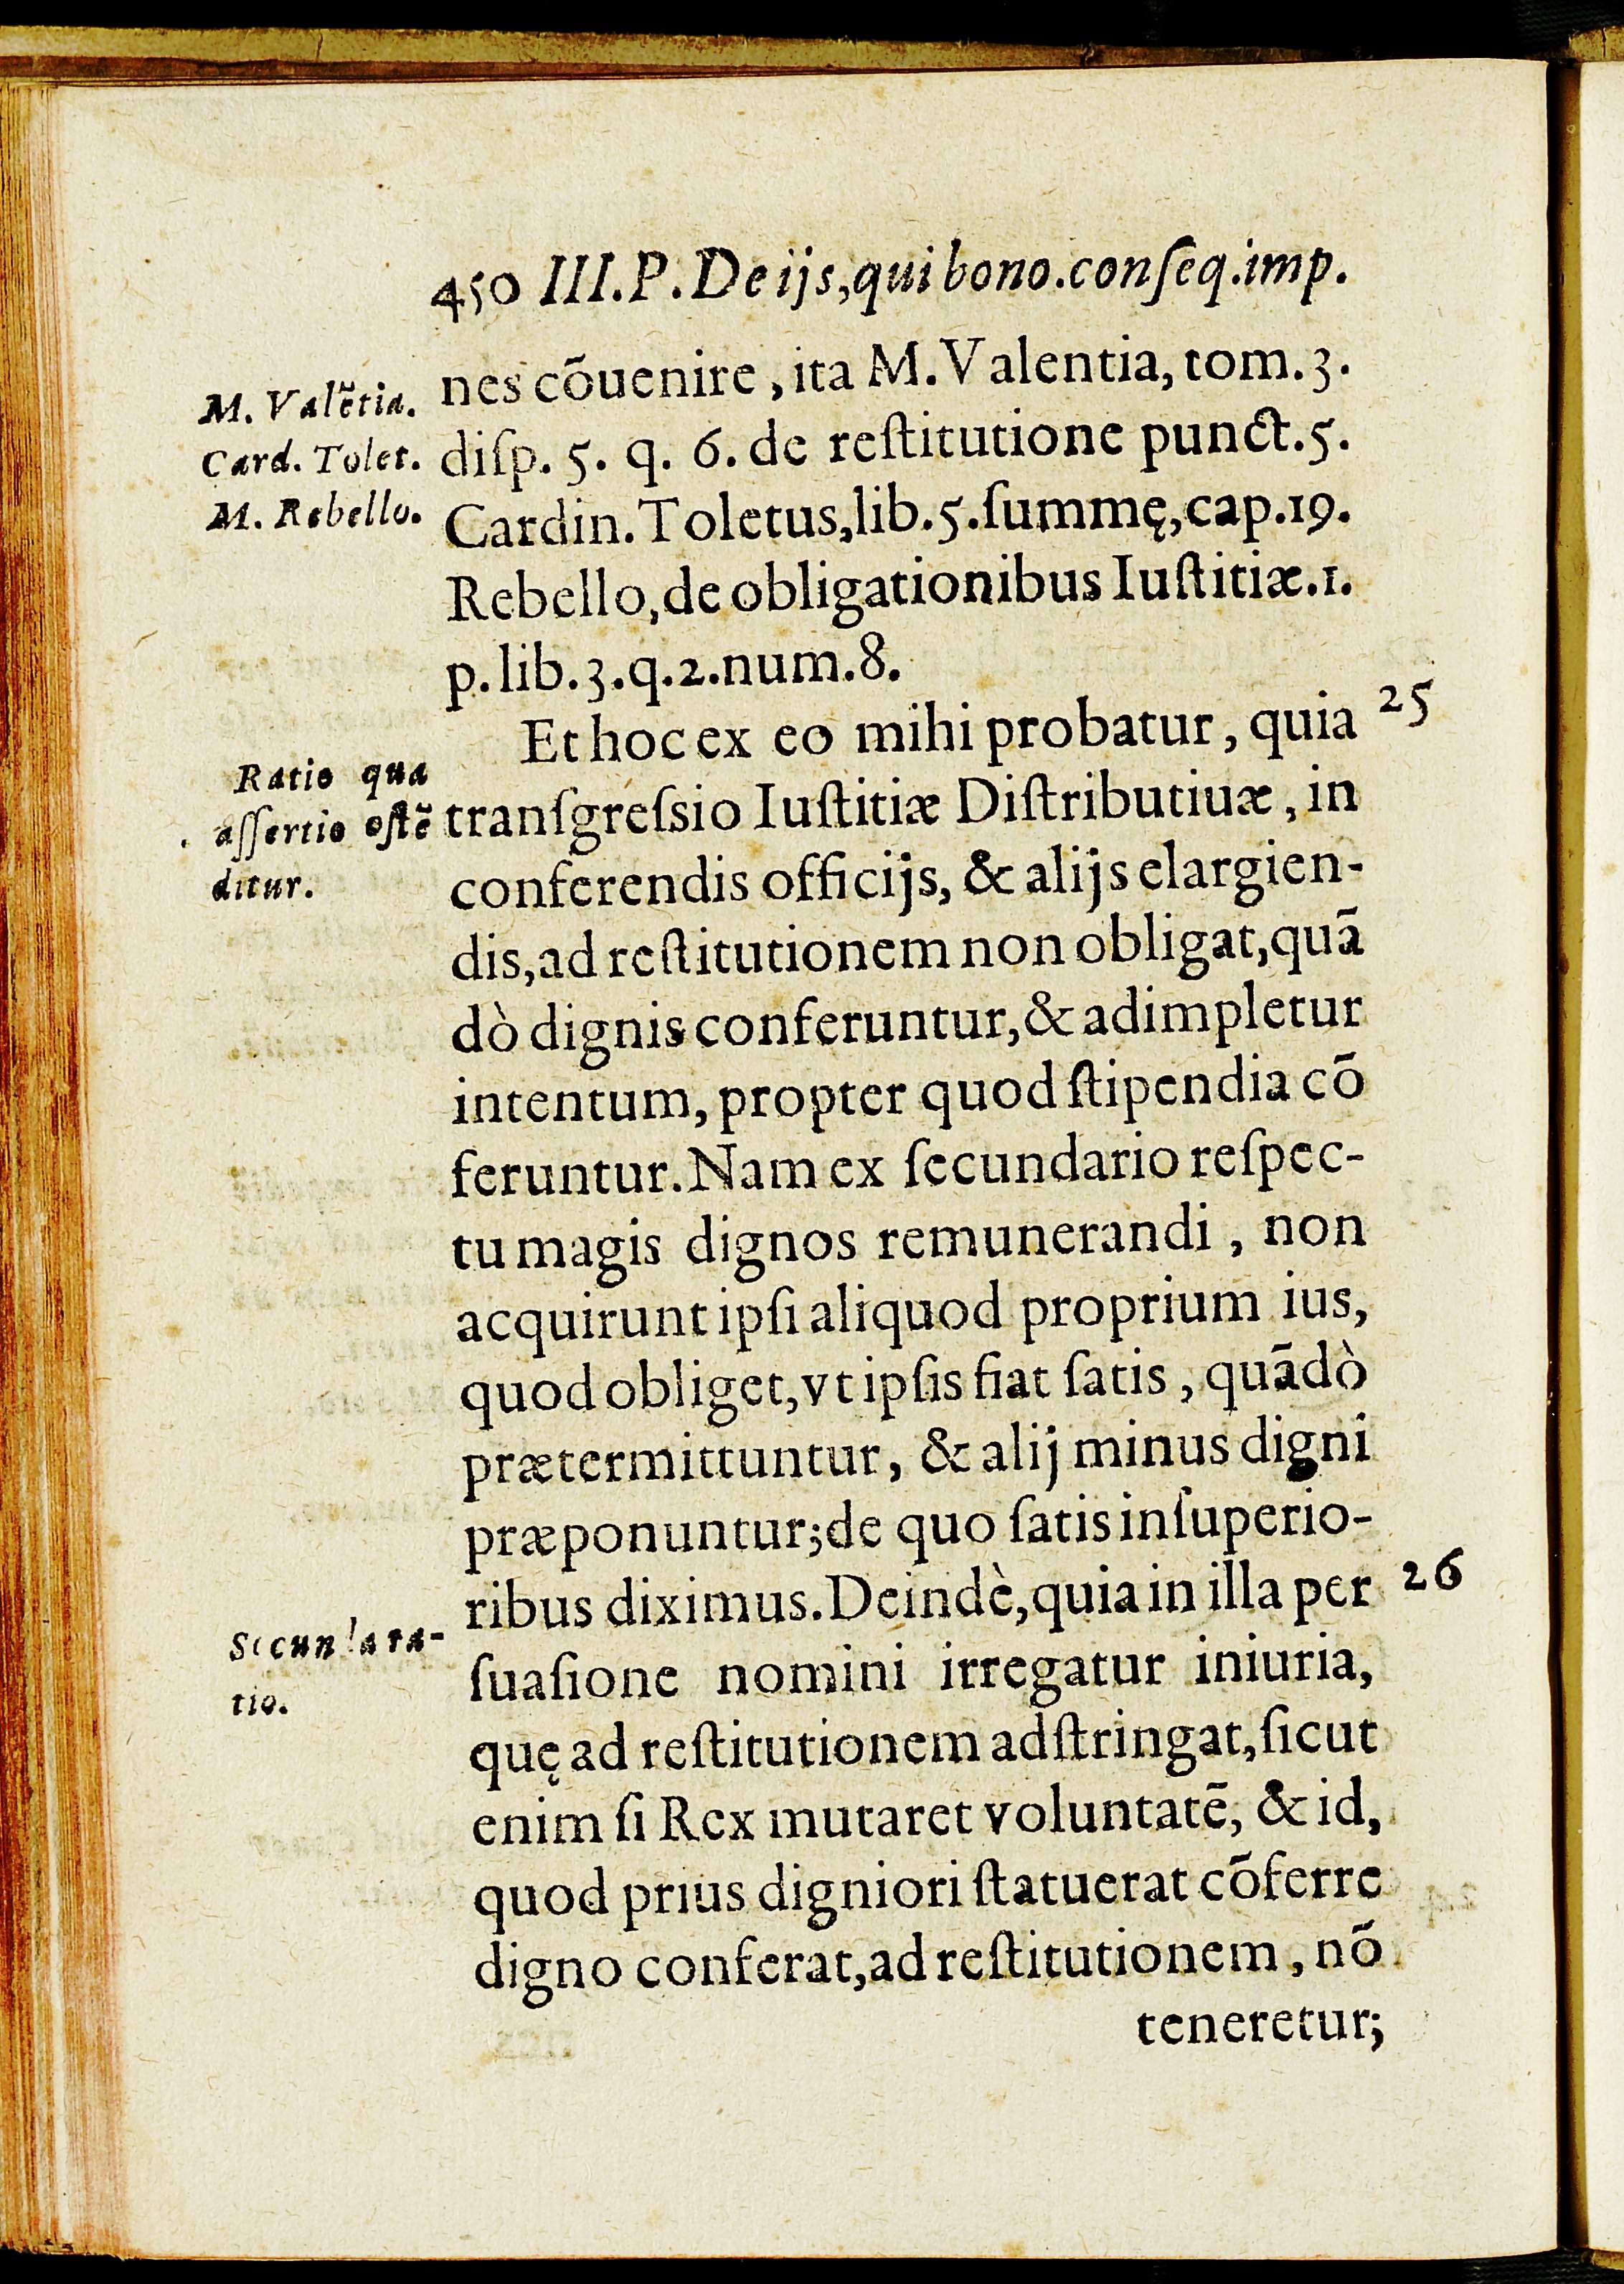 450 III.P. De ijs, qui bono. conſeq. imp.
M. Valẽtia.
Card. Tolet.
M. Rebello.
nes cõuenire, ita M. Valentia, tom. 3.
diſp. 5. q. 6. de reſtitutione punct. 5.
Cardin. Toletus, lib. 5. ſummę, cap. 19.
Rebello, de obligationibus Iuſtitiæ. 1.
p. lib. 3. q. 2. num. 8.
Et hoc ex eo mihi probatur, quia 25
Ratio qua
aſſertio oſtẽ
ditur.
tranſgreſsio Iuſtitiæ Diſtributiuæ, in
conferendis officijs, & alijs elargien-
dis, ad reſtitutionem non obligat, quã
dò dignis conferuntur, & adimpletur
intentum, propter quod ſtipendia cõ
feruntur. Nam ex ſecundario reſpec-
tu magis dignos remunerandi, non
acquirunt ipſi aliquod proprium ius,
quod obliget, vt ipſis fiat ſatis, quãdò
prætermittuntur, & alij minus digni
præponuntur; de quo ſatis in ſuperio-
ribus diximus. Deindè, quia in illa per 26
Secunda ra-
tio.
ſuaſione nomini irregatur iniuria,
quę ad reſtitutionem adſtringat, ſicut
enim ſi Rex mutaret voluntatẽ, & id,
quod prius digniori ſtatuerat cõferre
digno conferat, ad reſtitutionem, nõ
teneretur;